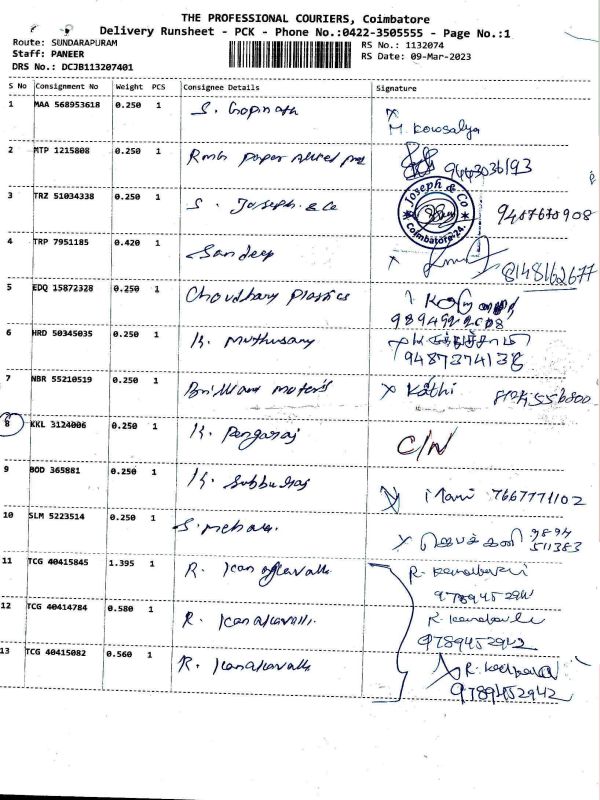 THE PROFESSIONAL COURIERS, Coimbatore
Delivery Runsheet - PCK - Phone No.:0422-3505555 - Page No.:1
Route: SUNDARAPURAM
Staff: PANEER
DRS No.: DCJB113207401
RS No.: 1132074
RS Date: 09-Mar-2023
S No Consignment No Weight PCS Consignee Details Signature
1 MAA 568953618 0.250 1 S. Gopinath
M. Kowsalya
2 MTP 1215808 0.250 1 9443036193
3 TRZ 51034338 0.250 1 S. Joseph & Co
Joseph & Co Coimbatore-24.
4 TRP 7951185 0.420 1 Sandeep
8148162677
5 EDQ 15872328 0.250 1 Choudhary Plastics
6 HRD 50345035 0.250 1 K. Muthusamy
7 NBR 55210519 0.250 1 Brilliant Motors Kathi
8 KKL 3124006 0.250 1 K. Rengaraj C/N
9 BOD 365881 0.250 1 K. Subburaj
Mani 7667771102
10 SLM 5223514 0.250 1
ஜெயக்கனி 9894
511383
11 TCG 40415845 1.395 1 R. Kanakavalli R.
12 TCG 40414784 0.580 1 R. Kanakavalli R.
9789452942
13 TCG 40415082 0.560 1 R. Kanakavalli R.
9789452942